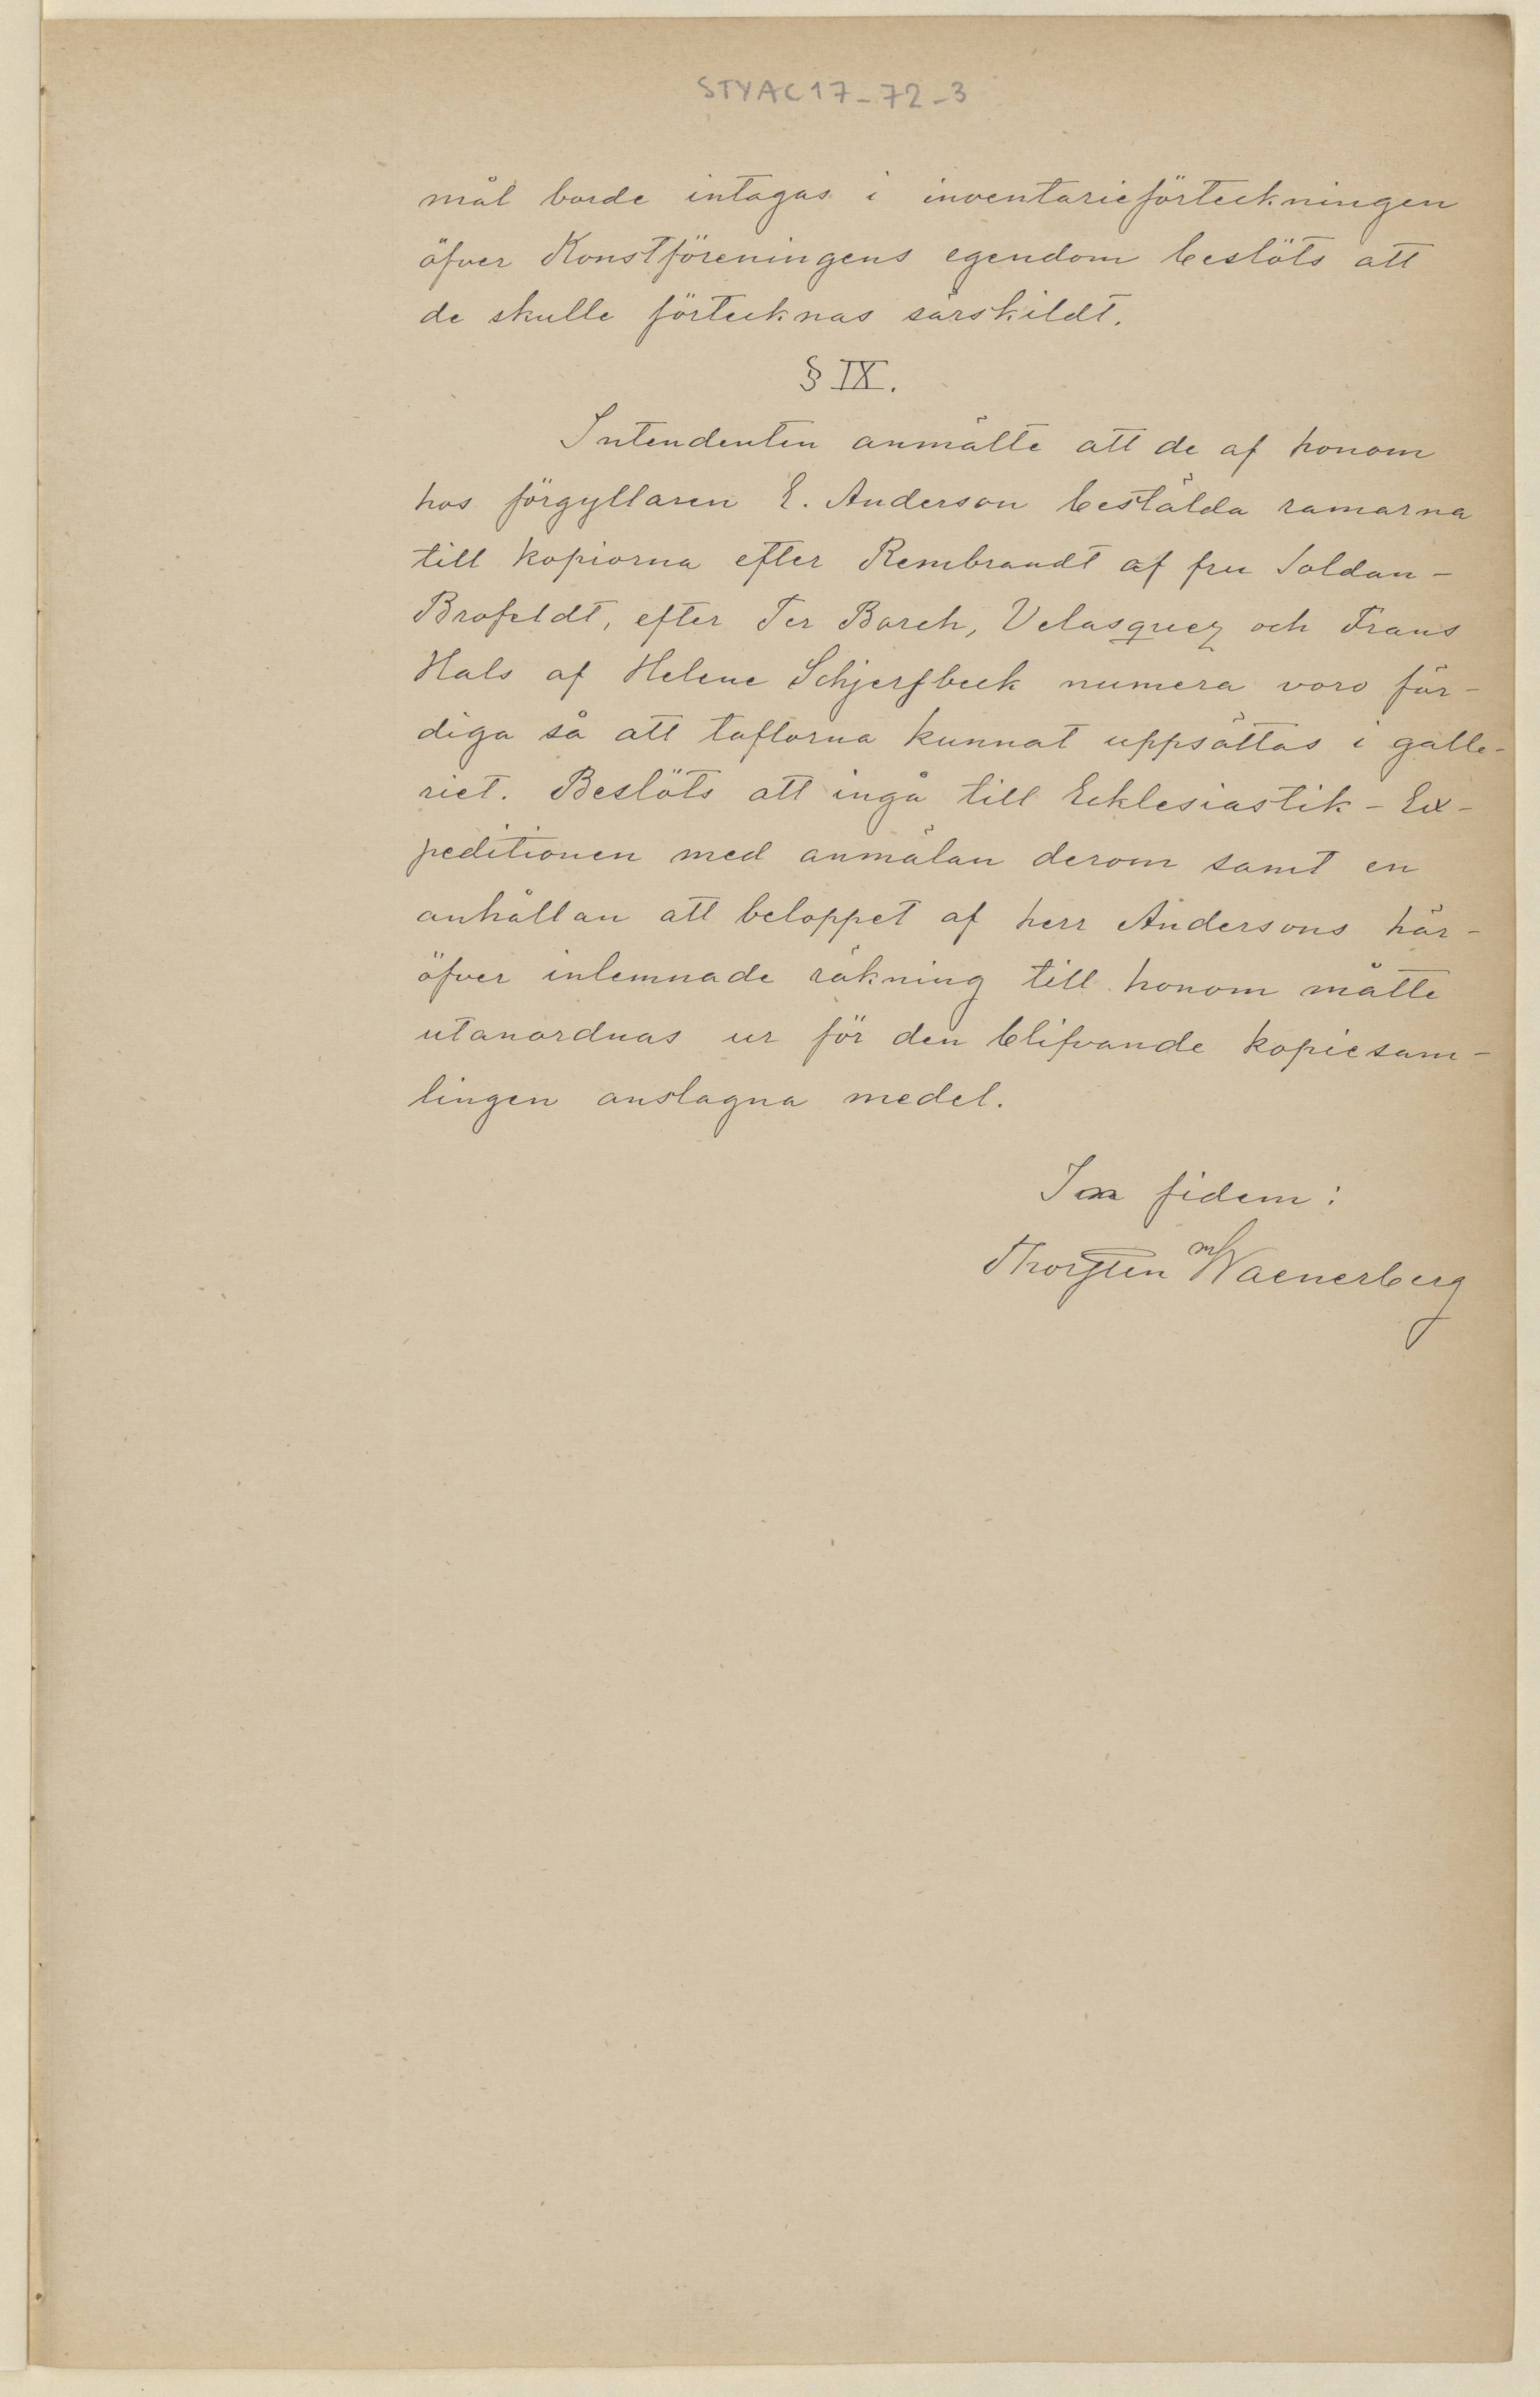 STYAC17_72_3
mål borde intagas i inventarieförteckningen
öfver Konstföreningens egendom beslöts att
de skulle förtecknas särskildt.
§ IX.
Intendenten anmälte att de af honom
hos förgyllaren E. Anderson bestälda ramarna
till kopiorna efter Rembrandt af fru Soldan-
Brofeldt, efter Ter Borch, Velasquez och Frans
Hals af Helene Schjerfbeck numera voro fär-
diga så att taflorna kunnat uppsättas i galle-
riet. Beslöts att ingå till Ecklesiastik-Ex-
peditionen med anmälan derom samt en
anhållan att beloppet af herr Andersons här-
öfver inlemnade räkning till honom måtte
utanordnas ur för den blifvande kopiesam-
lingen anslagna medel.
In fidem:
Thorsten Waenerberg